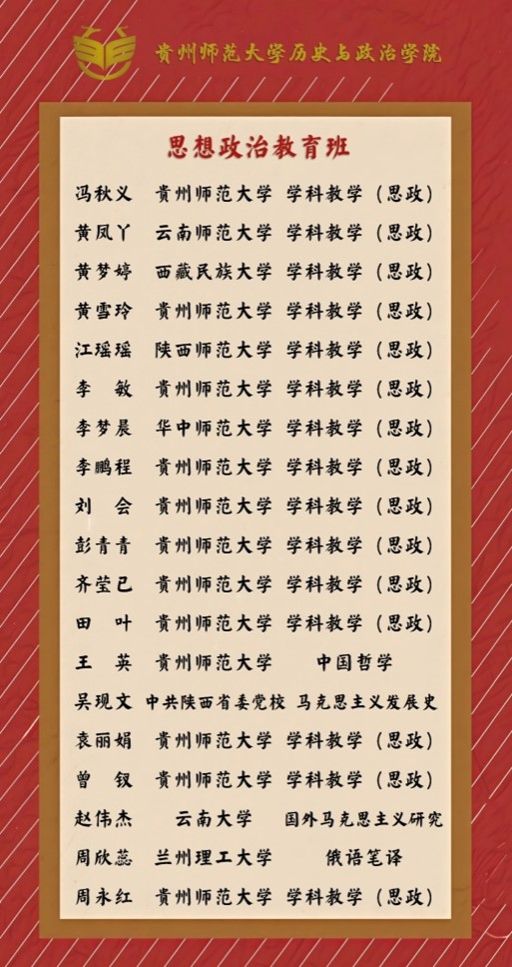 貴州师范大学历史与政治学院
思想政治教育班
冯秋义 貴州师范大学 学科教学（思政）
黄凤丫 云南师范大学 学科教学（思政）
黄梦婷 西藏民族大学 学科教学（思政）
黄雪玲 貴州师范大学 学科教学（思政）
江瑶瑶 陕西师范大学 学科教学（思政）
李 敏 貴州师范大学 学科教学（思政）
李梦晨 华中师范大学 学科教学（思政）
李鹏程 貴州师范大学 学科教学（思政）
刘 会 貴州师范大学 学科教学（思政）
彭青青 貴州师范大学 学科教学（思政）
齐莹已 貴州师范大学 学科教学（思政）
田 叶 貴州师范大学 学科教学（思政）
王 英 貴州师范大学 中国哲学
吴现文 中共陕西省委党校 马克思主义发展史
袁丽娟 貴州师范大学 学科教学（思政）
曾 钗 貴州师范大学 学科教学（思政）
赵伟杰 云南大学 国外马克思主义研究
周欣蕊 兰州理工大学 俄语笔译
周永红 貴州师范大学 学科教学（思政）